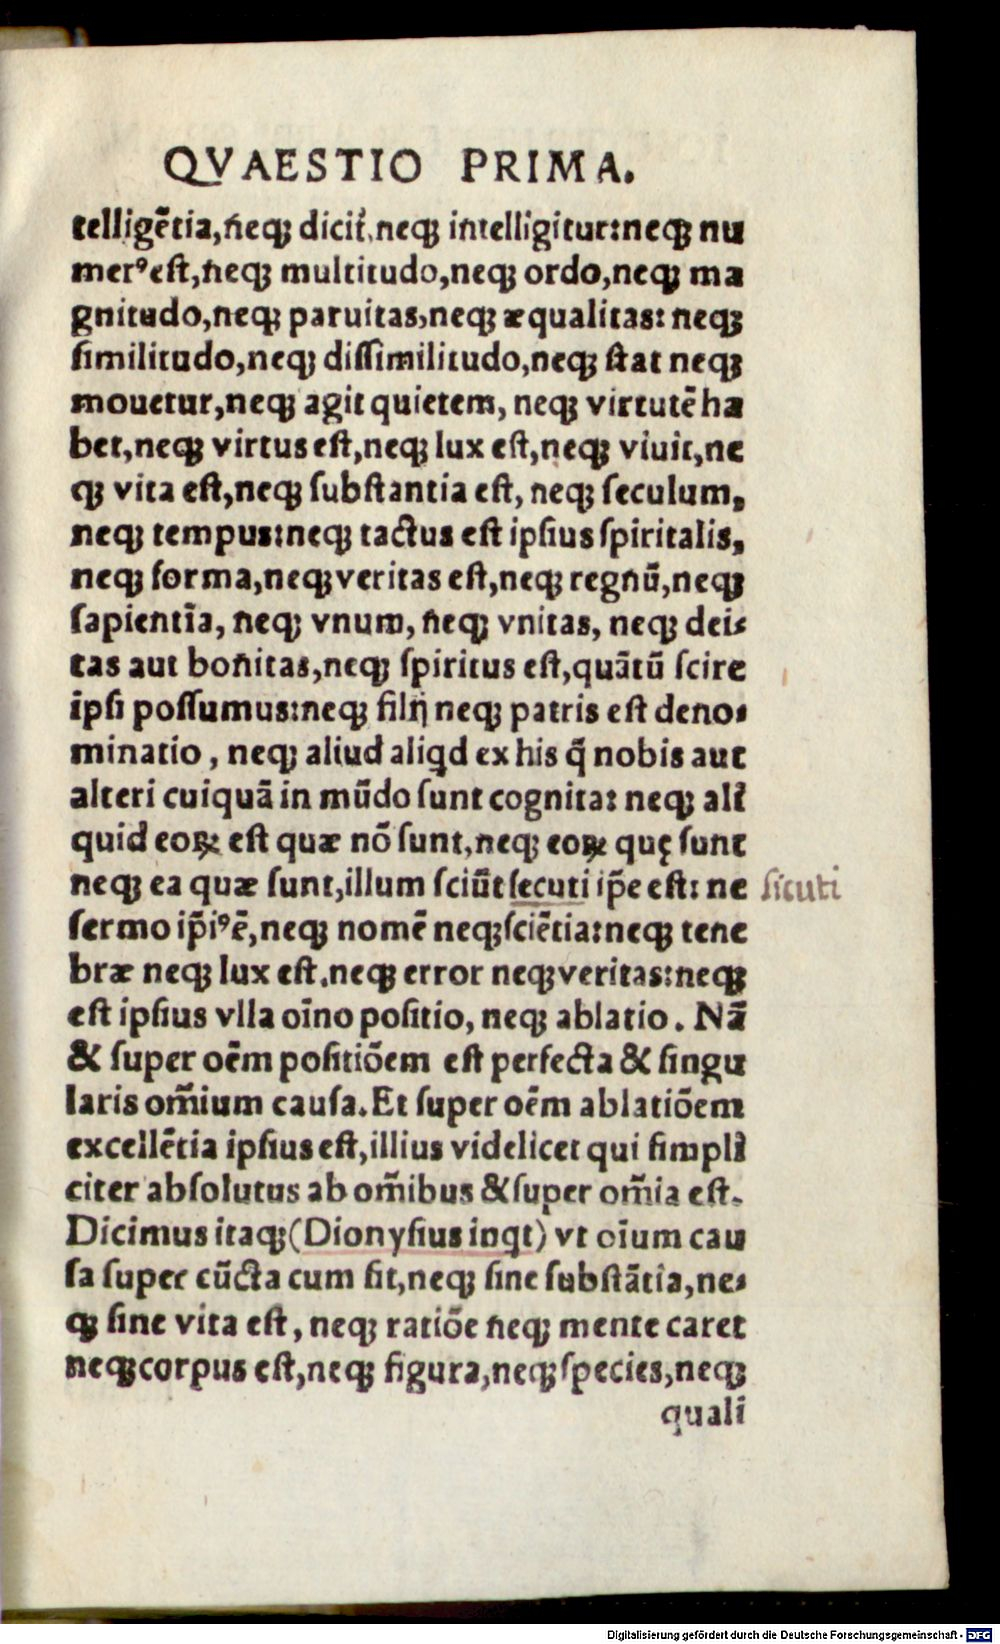 QVAESTIO PRIMA.
telligẽtia, neqꝫ dicit᷑, neqꝫ intelligitur: neqꝫ nu
merꝰ est, neqꝫ multitudo, neqꝫ ordo, neqꝫ ma
gnitudo, neqꝫ paruitas, neqꝫ æqualitas: neqꝫ
ſimilitudo, neqꝫ diſſimilitudo, neqꝫ ſtat neqꝫ
mouetur, neqꝫ agit quietem, neqꝫ virtutẽ ha
bet, neqꝫ virtus eſt, neqꝫ lux eſt, neqꝫ viuit, ne
qꝫ vita eſt, neqꝫ ſubſtantia eſt, neqꝫ ſeculum,
neqꝫ tempus: neqꝫ tactus eſt ipſius ſpiritalis,
neqꝫ forma, neqꝫ veritas eſt, neqꝫ regnũ, neqꝫ
ſapientia, neqꝫ vnum, neqꝫ vnitas, neqꝫ dei⸗
tas aut bonitas, neqꝫ ſpiritus eſt, quãtũ ſcire
ipſi poſſumus: neqꝫ filij neqꝫ patris eſt deno⸗
minatio, neqꝫ aliud aliqd ex his q̃ nobis aut
alteri cuiquã in mũdo ſunt cognita: neqꝫ ali
quid eoꝝ eſt quæ nõ ſunt, neqꝫ eoꝝ quę ſunt
neqꝫ ea quæ ſunt, illum ſciũt ſecuti ip̃e eſt: ne ſicuti
ſermo ip̃iꝰ ẽ, neqꝫ nomẽ neqꝫ ſciẽtia: neqꝫ tene
bræ neqꝫ lux eſt, neqꝫ error neqꝫ veritas: neqꝫ
eſt ipſius vlla oĩno poſitio, neqꝫ ablatio. Nã
& ſuper oẽm poſitiõem eſt perfecta & ſingu
laris om̃ium cauſa. Et ſuper oẽm ablatiõem
excellẽtia ipſius eſt, illius videlicet qui ſimpli
citer abſolutus ab om̃ibus & ſuper om̃ia eſt.
Dicimus itaqꝫ (Dionyſius inqt) vt oĩum cau
ſa ſuper cũcta cum ſit, neqꝫ ſine ſubſtãtia, ne⸗
qꝫ ſine vita eſt, neqꝫ ratiõe neqꝫ mente caret
neqꝫ corpus eſt, neqꝫ figura, neqꝫ ſpecies, neqꝫ
quali
Digitalisierung gefördert durch die Deutsche Forschungsgemeinschaft - DFG